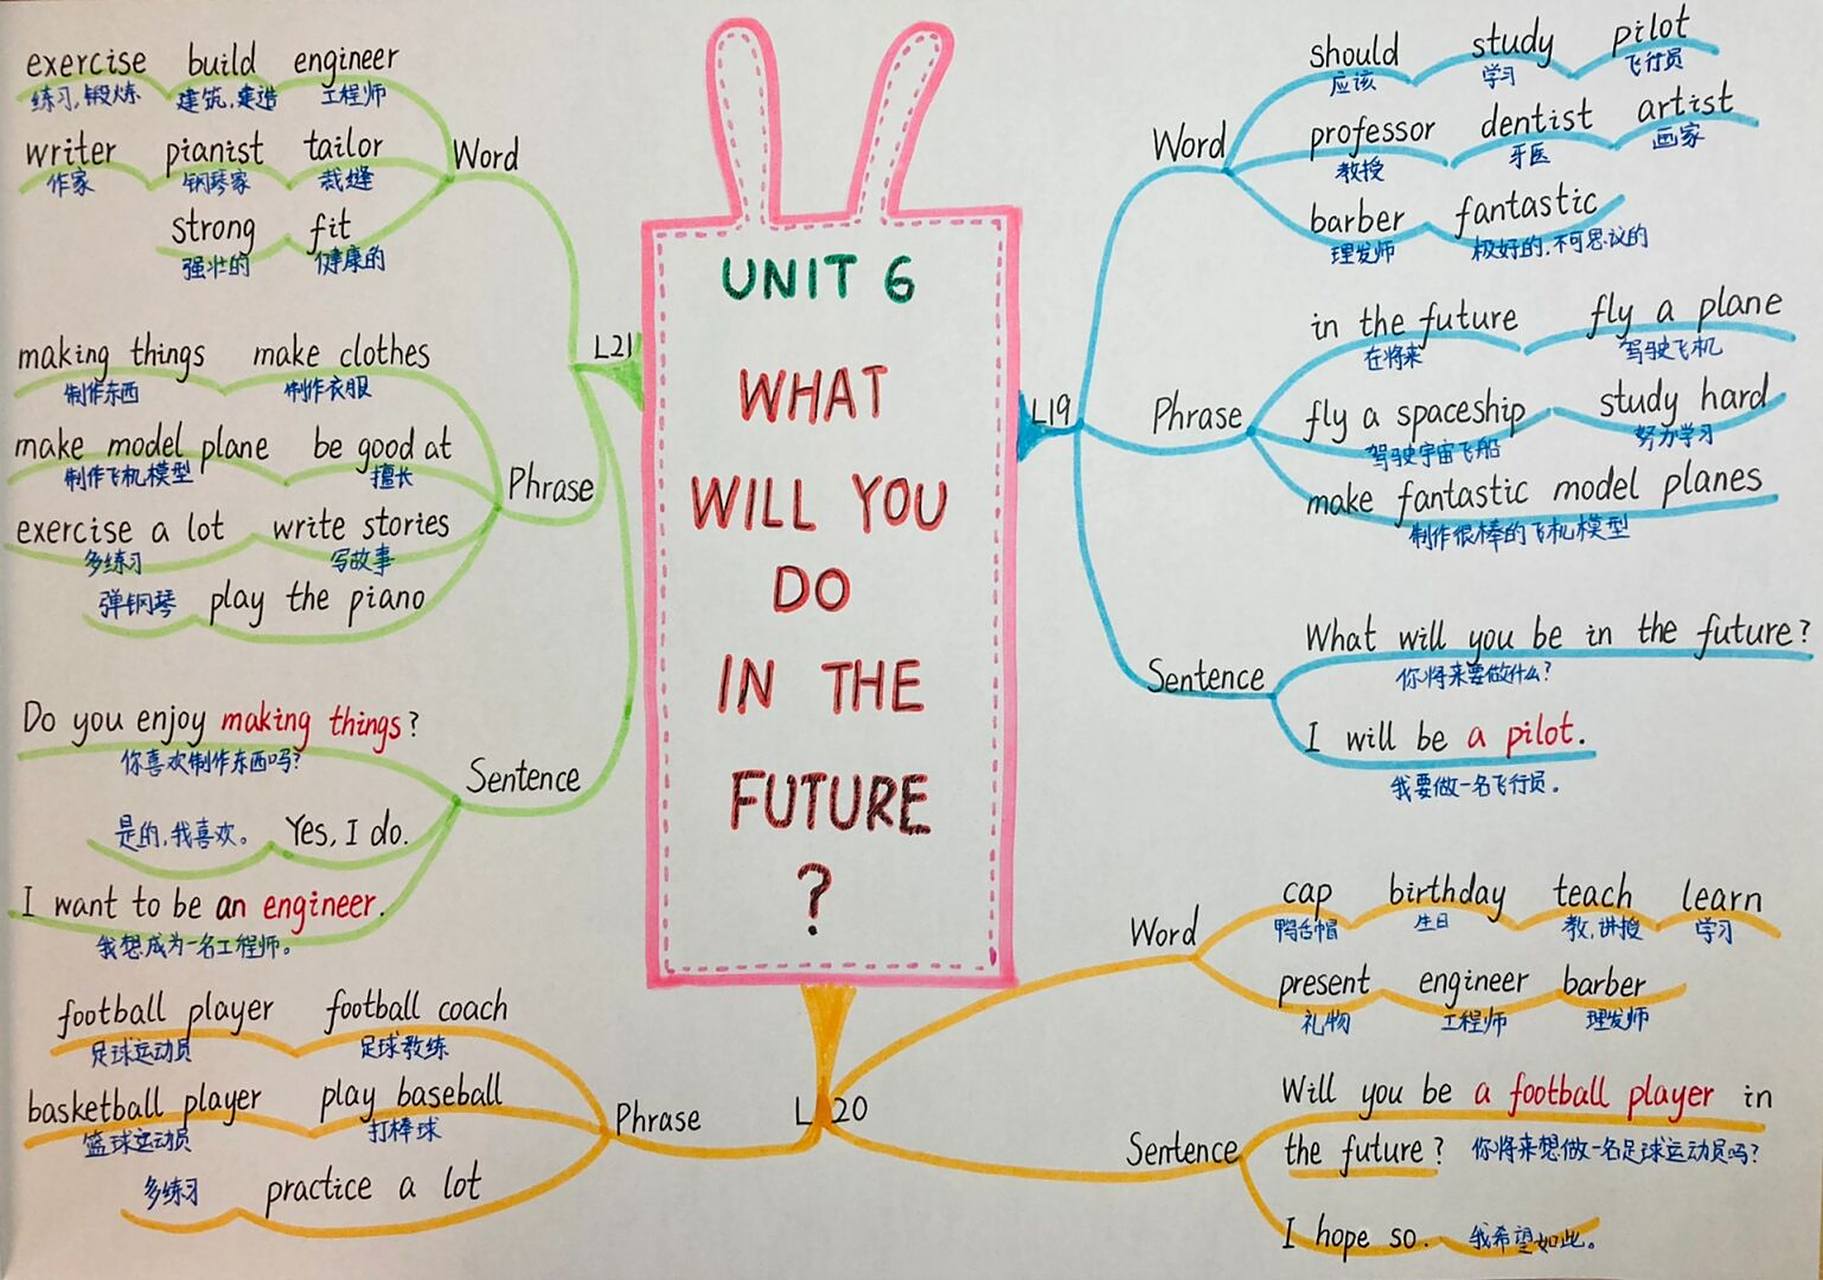 UNIT 6
WHAT
WILL YOU
DO
IN THE
FUTURE
?
L19
Word
should study pilot
应该 学习 飞行员
professor dentist artist
教授 牙医 画家
barber fantastic
理发师 极好的,不可思议的
Phrase
in the future fly a plane
在将来 驾驶飞机
fly a spaceship study hard
驾驶宇宙飞船 努力学习
make fantastic model planes
制作很棒的飞机模型
Sentence
What will you be in the future?
你将来要做什么?
I will be a pilot.
我要做一名飞行员。
L20
Word
cap birthday teach learn
鸭舌帽 生日 教,讲授 学习
present engineer barber
礼物 工程师 理发师
Sentence
Will you be a football player in
the future? 你将来想做一名足球运动员吗?
I hope so. 我希望如此。
Phrase
football player football coach
足球运动员 足球教练
basketball player play baseball
篮球运动员 打棒球
多练习 practice a lot
L21
Word
exercise build engineer
练习,锻炼 建筑,建造 工程师
writer pianist tailor
作家 钢琴家 裁缝
strong fit
强壮的 健康的
Phrase
making things make clothes
制作东西 制作衣服
make model plane be good at
制作飞机模型 擅长
exercise a lot write stories
多练习 写故事
弹钢琴 play the piano
Sentence
Do you enjoy making things?
你喜欢制作东西吗?
是的,我喜欢。 Yes, I do.
I want to be an engineer.
我想成为一名工程师。